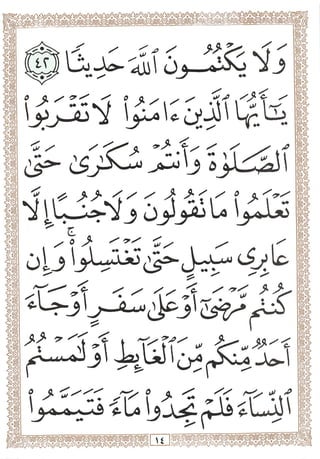 وَلَا يَكْتُمُونَ ٱللَّهَ حَدِيثًا ٤٢
يَـٰٓأَيُّهَا ٱلَّذِينَ ءَامَنُوا۟ لَا تَقْرَبُوا۟
ٱلصَّلَوٰةَ وَأَنتُمْ سُكَـٰرَىٰ حَتَّىٰ
تَعْلَمُوا۟ مَا تَقُولُونَ وَلَا جُنُبًا إِلَّا
عَابِرِى سَبِيلٍ حَتَّىٰ تَغْتَسِلُوا۟ ۚ وَإِن
كُنتُم مَّرْضَىٰٓ أَوْ عَلَىٰ سَفَرٍ أَوْ جَآءَ
أَحَدٌ مِّنكُم مِّنَ ٱلْغَآئِطِ أَوْ لَـٰمَسْتُمُ
ٱلنِّسَآءَ فَلَمْ تَجِدُوا۟ مَآءً فَتَيَمَّمُوا۟
١٤